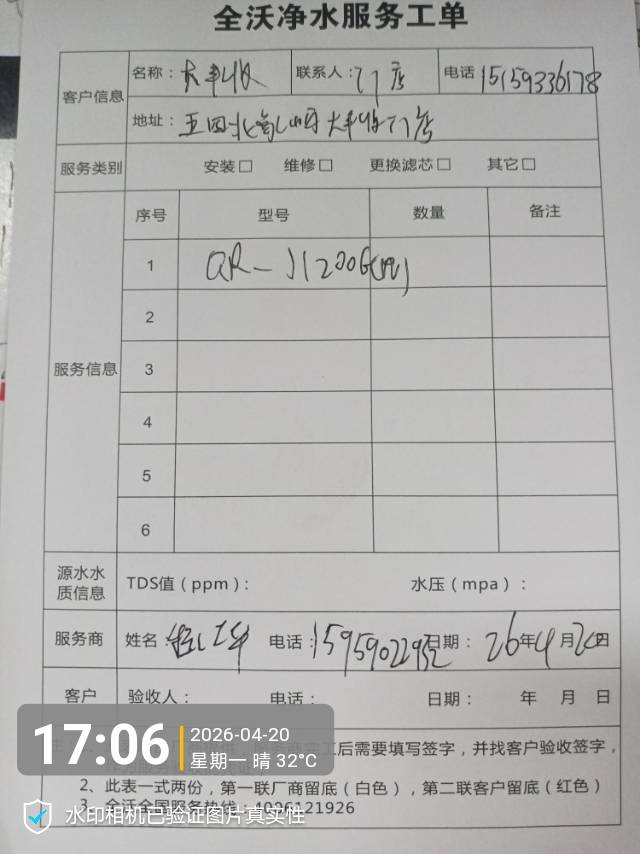 全沃净水服务工单
客户信息
名称：大丰收 联系人：门店 电话 15159336178
地址：五四北 大丰收门店
服务类别 安装□ 维修□ 更换滤芯□ 其它□
服务信息
序号 型号 数量 备注
1 QR-J1200G
2
3
4
5
6
源水水质信息 TDS值（ppm）： 水压（mpa）：
服务商 姓名： 电话：15959022952 日期：26年4月20日
客户 验收人： 电话： 日期： 年 月 日
后需要填写签字，并找客户验收签字，
2、此表一式两份，第一联厂商留底（白色），第二联客户留底（红色）
3、全沃全国服务热线：4006121926
17:06
2026-04-20
星期一 晴 32℃
水印相机已验证图片真实性